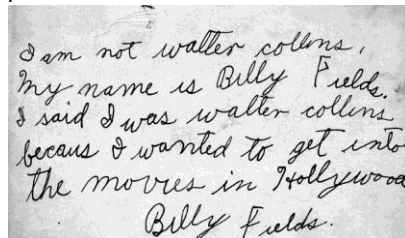 I am not walter collins,
My name is Billy Fields.
I said I was walter collins
becaus I wanted to get into
the movies in Hollywood
Billy Fields.